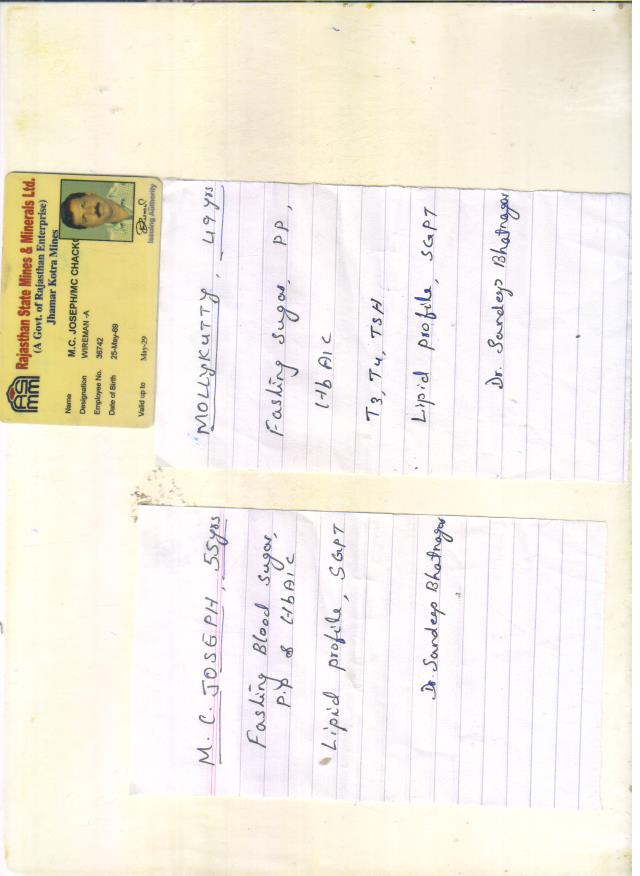 RSMM
Rajasthan State Mines & Minerals Ltd.
(A Govt. of Rajasthan Enterprise)
Jhamar Kotra Mines
Name M.C. JOSEPH/MC CHACKO
Designation WIREMAN -A
Employee No. 36742
Date of Birth 25-May-69
Valid up to May-29
Issuing Authority
MOLLYKUTTY, 49 yrs
Fasting Sugar, PP,
HbA1C
T3, T4, TSH
Lipid profile, SGPT
Dr. Sandeep Bhatnagar
M. C. JOSEPH, 55yrs
Fasting Blood Sugar,
P.P & HbA1C
Lipid profile, SGPT
Dr. Sandeep Bhatnagar